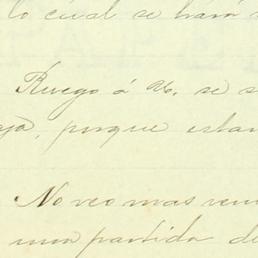 lo cual se hará
Ruego á V. se s
aja, porque estan
No veo mas ven
una partida de